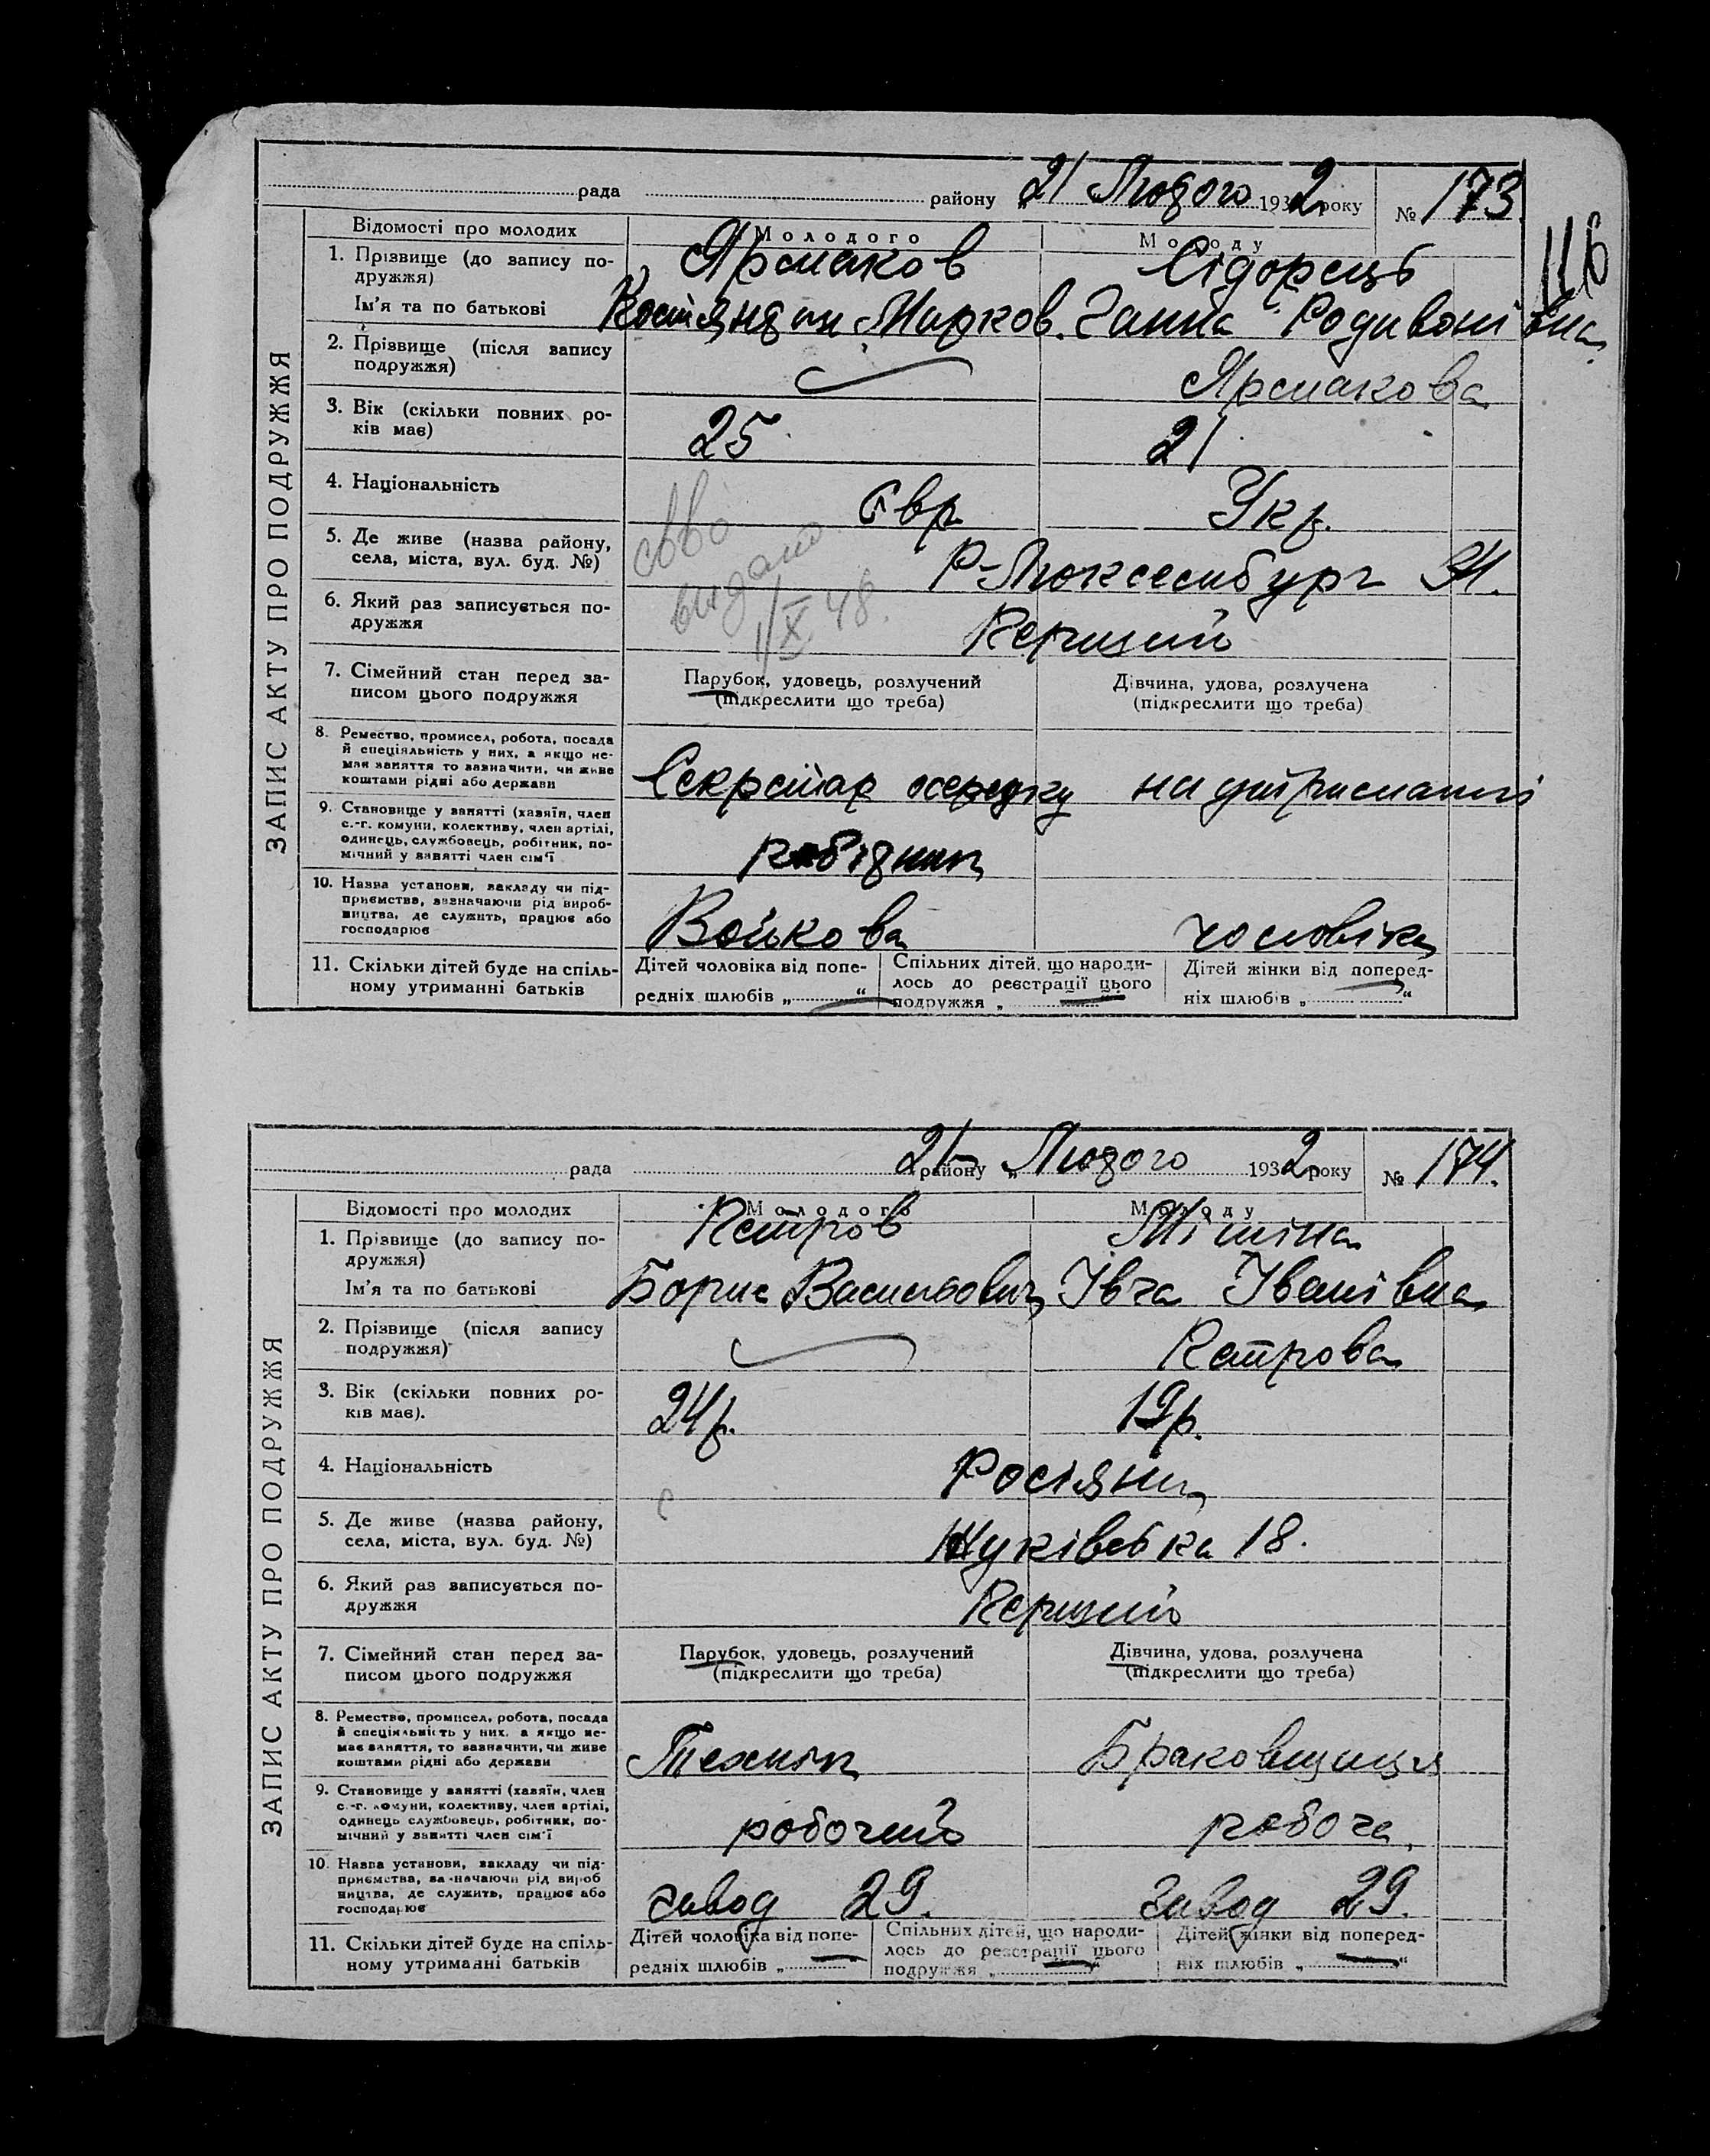 рада району 21 Лютого 1932 року № 173
116
Відомості про молодих Молодого Молоду
1. Прізвище (до запису подружжя) Ярмаков Сідорець
Ім'я та по батькові Костянтин Марков. Ганна Родивонівна
2. Прізвище (після запису подружжя) Ярмакова
3. Вік (скільки повних років має) 25 21
4. Національність Євр. Укр.
5. Де живе (назва району, села, міста, вул. буд. №) Р-Люксембург 91.
свво видано 1/X 48.
6. Який раз записується подружжя Перший
7. Сімейний стан перед записом цього подружжя Парубок, удовець, розлучений (підкреслити що треба) Дівчина, удова, розлучена (підкреслити що треба)
8. Ремество, промисел, робота, посада й спеціяльність у них, а якщо немає заняття то зазначити, чи живе коштами рідні або держави Секретар осередку на утриманні
9. Становище у занятті (хазяїн, член с.-г. комуни, колективу, член артілі, одинець, службовець, робітник, помічний у занятті член сім'ї робідник
10. Назва установи, закладу чи підприємства, зазначаючи рід виробництва, де служить, працює або господарює Войкова чоловіка
11. Скільки дітей буде на спільному утриманні батьків Дітей чоловіка від попередніх шлюбів „ “ Спільних дітей, що народилось до реєстрації цього подружжя „ “ Дітей жінки від попередніх шлюбів „ “
ЗАПИС АКТУ ПРО ПОДРУЖЖЯ
рада району 21 „ Лютого 1932 року № 174.
Відомості про молодих Молодого Молоду
1. Прізвище (до запису подружжя) Петров Мітіна
Ім'я та по батькові Борис Васильович Івга Іванівна
2. Прізвище (після запису подружжя) Петрова
3. Вік (скільки повних років має). 24р. 19р.
4. Національність Росіяни
5. Де живе (назва району, села, міста, вул. буд. №) Жуківська 18.
6. Який раз записується подружжя Перший
7. Сімейний стан перед записом цього подружжя Парубок, удовець, розлучений (підкреслити що треба) Дівчина, удова, розлучена (підкреслити що треба)
8. Ремество, промисел, робота, посада й спеціяльність у них, а якщо немає заняття, то зазначити, чи живе коштами рідні або держави Технік Браковщиця
9. Становище у занятті (хазяїн, член с.-г. комуни, колективу, член артілі, одинець службовець, робітник, помічний у занятті член сім'ї робочий робоча
10. Назва установи, закладу чи підприємства, зазначаючи рід виробництва, де служить, працює або господарює завод 29. завод 29.
11. Скільки дітей буде на спільному утриманні батьків Дітей чоловіка від попередніх шлюбів „ “ Спільних дітей, що народилось до реєстрації цього подружжя „ “ Дітей жінки від попередніх шлюбів „ “
ЗАПИС АКТУ ПРО ПОДРУЖЖЯ